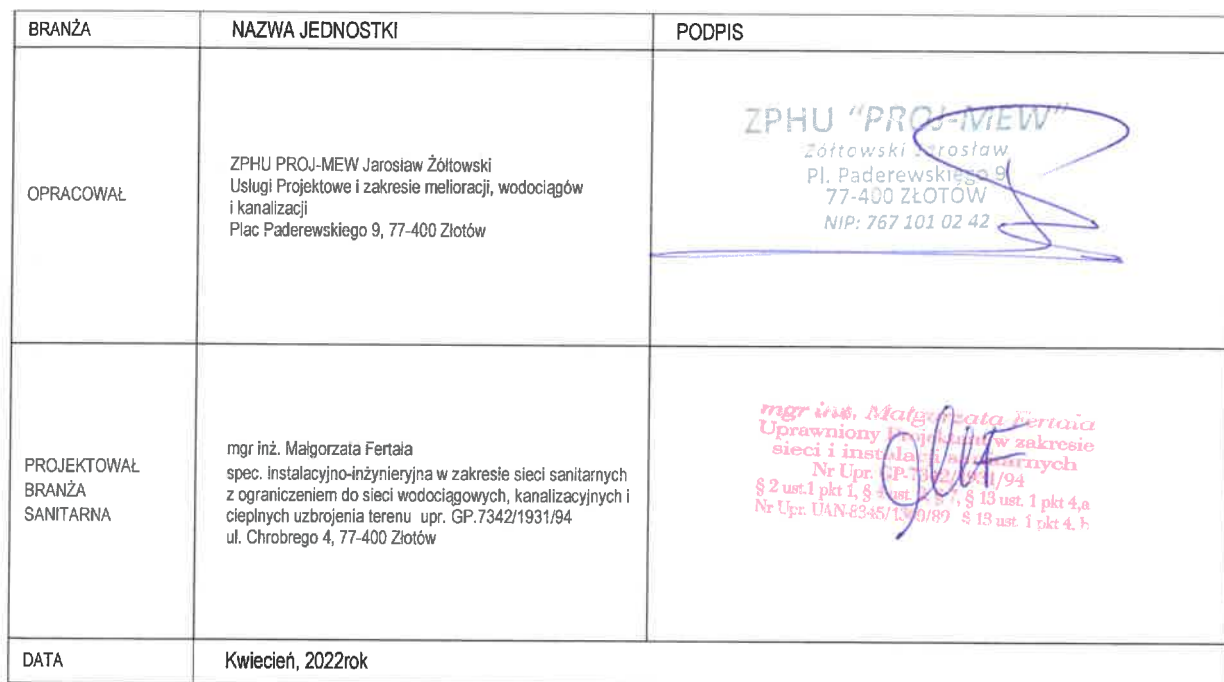 BRANŻA
NAZWA JEDNOSTKI
PODPIS
OPRACOWAŁ
ZPHU PROJ-MEW Jarosław Żółtowski
Usługi Projektowe i zakresie melioracji, wodociągów
i kanalizacji
Plac Paderewskiego 9, 77-400 Złotów
ZPHU "PROJ-MEW"
Żółtowski Jarosław
Pl. Paderewskiego 9
77-400 ZŁOTÓW
NIP: 767 101 02 42
PROJEKTOWAŁ
BRANŻA
SANITARNA
mgr inż. Małgorzata Fertała
spec. instalacyjno-inżynieryjna w zakresie sieci sanitarnych
z ograniczeniem do sieci wodociągowych, kanalizacyjnych i
cieplnych uzbrojenia terenu upr. GP.7342/1931/94
ul. Chrobrego 4, 77-400 Złotów
mgr inż. Małgorzata Fertała
Uprawniony Projektant w zakresie
sieci i instalacji sanitarnych
Nr Upr. GP-7342/1931/94
§ 2 ust.1 pkt 1, § ust. § 13 ust. 1 pkt 4,a
Nr Upr. UAN-8345/ /89 § 13 ust. 1 pkt 4. b
DATA
Kwiecień, 2022rok